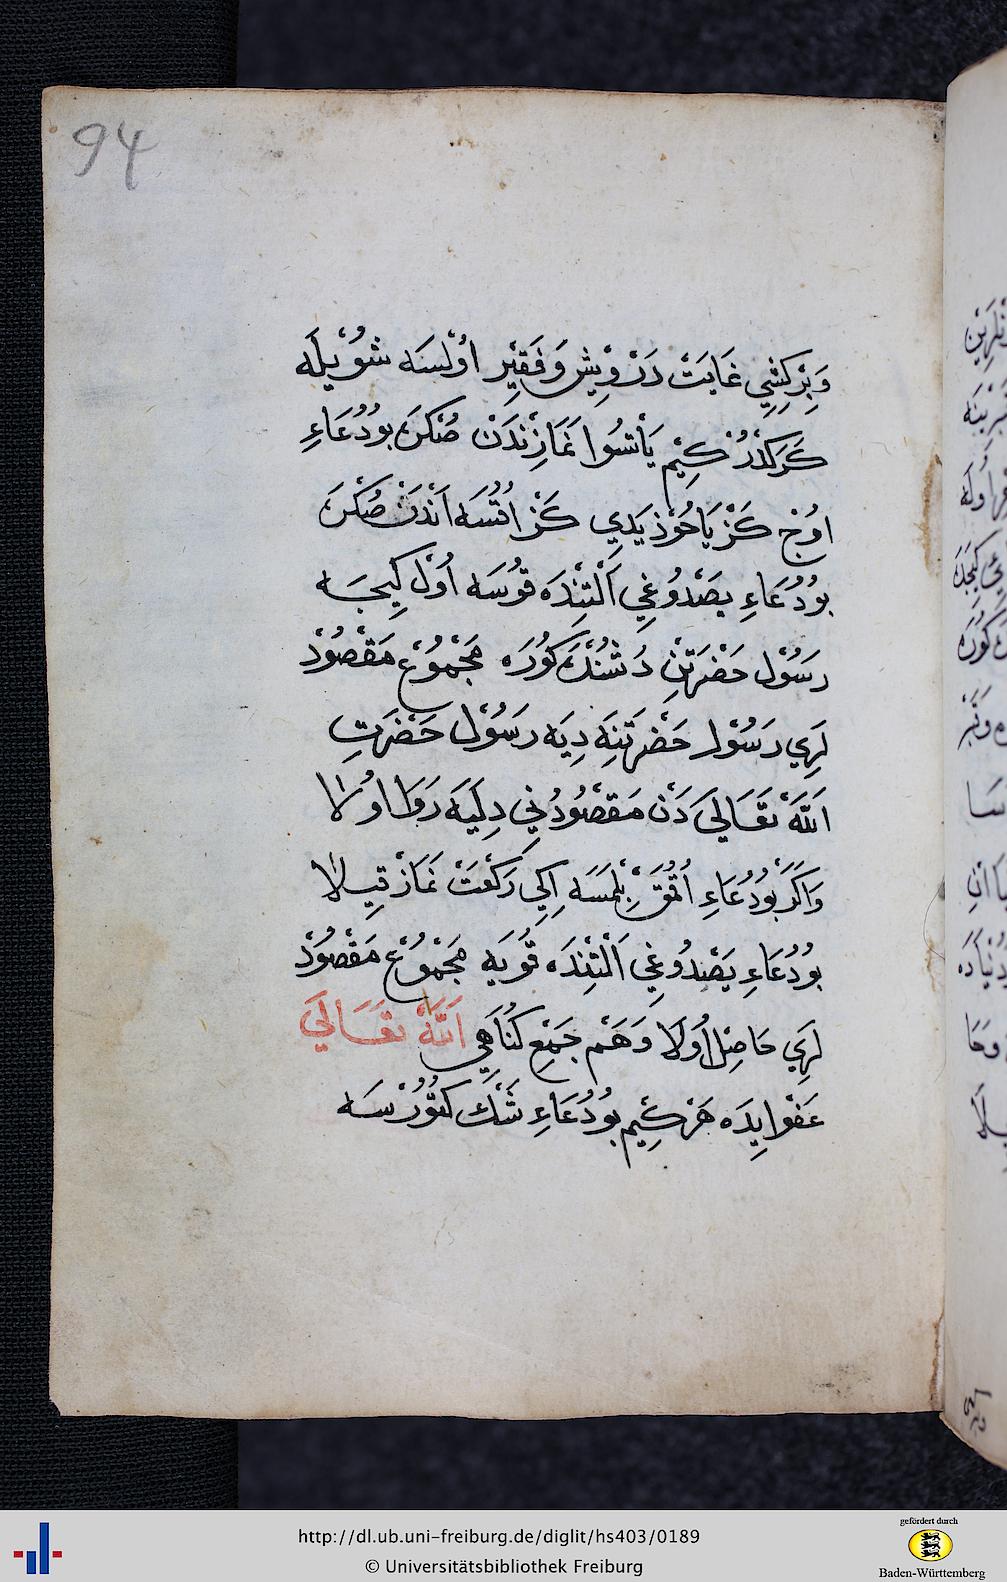 94
وَبِرْ كِشِي غَايَتْ دَرْوِيشْ وَفَقِيْرِ اوُلْسَه شُوْيلَه
كَرَكْدُرْ كِيْم يَاتْسُوا نَمَازِنْدَنْ صُكْرَه بُودُعَاءِ
اوُجْ كَزْ يَاخُوذ يَدِي كَزْ اقُسَه اَنْدَنْ صُكْرَه
بُودُعَاءِ يَصْدُوغِي اَلْتِنْدَه قوُسَه اوُل كِيجَه
رَسُوْل حَضْرَتِنْ دُشُنْدَه كَوُرَه مَجْمُوُعِ مَقْصُوُدْ
لَرِي رَسُوْل حَضْرَتِنَه دِيَه رَسُوْل حَضْرَتِ
اَللهْ تَعَالَي دَنْ مَقْصُوُدُنِي دِلَيَه رَوَا اوُلا
وَاكَرْ بُودُعَاءِ اُقُمَقْ بِلْمَسَه اِكِي رَكْعَتْ نَمَازْ قِيلا
بُودُعَاءِ يَصْدُوغِي اَلْتِنْدَه قُويَه مَجْمُوُعِ مَقْصُوُدْ
لَرِي حَاصِلْ اُولَا وَهَمْ جَمِيْعِ كُنَاهِي اَللهْ تَعَالَي
عَفْوايِدَه هَرْ كِيْم بُودُعَاءِ شَكْ كَتُوُرْسَه
http://dl.ub.uni-freiburg.de/diglit/hs403/0189
© Universitätsbibliothek Freiburg
gefördert durch
Baden-Württemberg